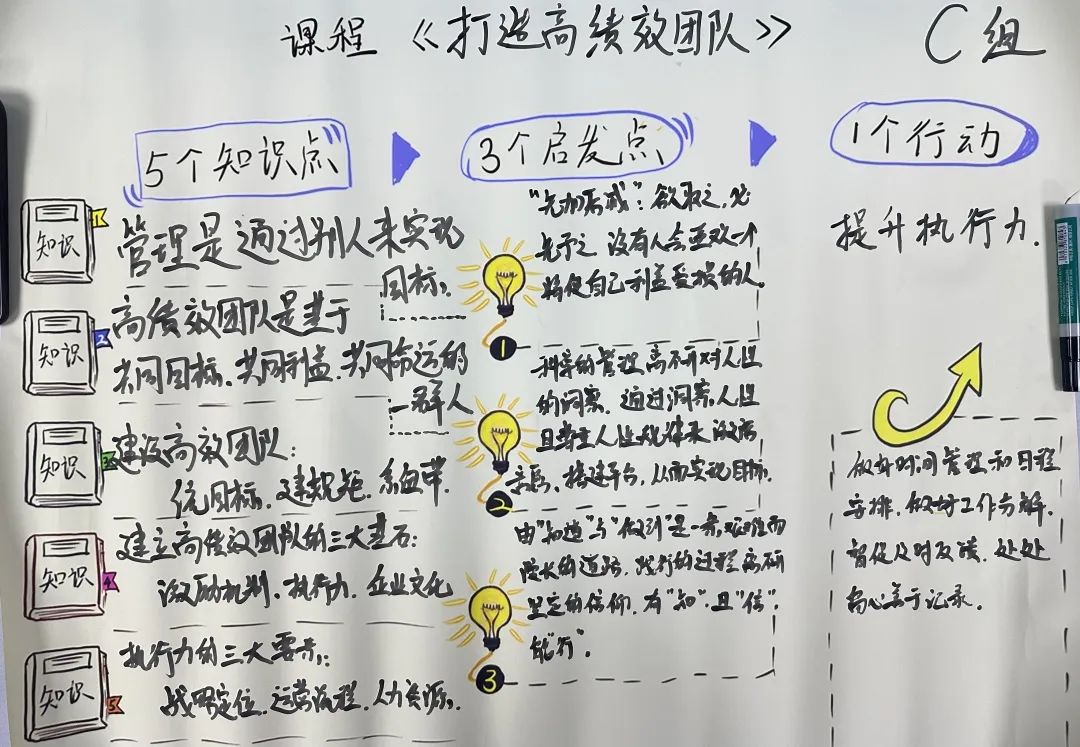 课程 《打造高绩效团队》
C组
5个知识点
知识
1
管理是通过别人来实现
目标。
知识
2
高绩效团队是基于
共同目标、共同利益、共同命运的
一群人
知识
3
建设高效团队:
统目标、建规矩、系血带.
知识
4
建立高绩效团队的三大基石:
激励机制、执行力、企业文化
知识
5
执行力的三大要素:
战略定位、运营流程、人力资源。
3个启发点
1
"先加后减":欲取之,必
先予之 没有人会喜欢一个
将使自己利益受损的人.
2
科学的管理,离不开对人性
的洞察,通过洞察人性
且尊重人性规律来激活
搭建平台,从而实现目标.
3
由"知道"与"做到"是一条艰难而
漫长的道路,践行的过程离不开
坚定的信仰,有"知"且"信",
能"行"。
1个行动
提升执行力.
做好时间管理和日程
安排,做好工作分解,
督促及时反馈,处处
留心善于记录.